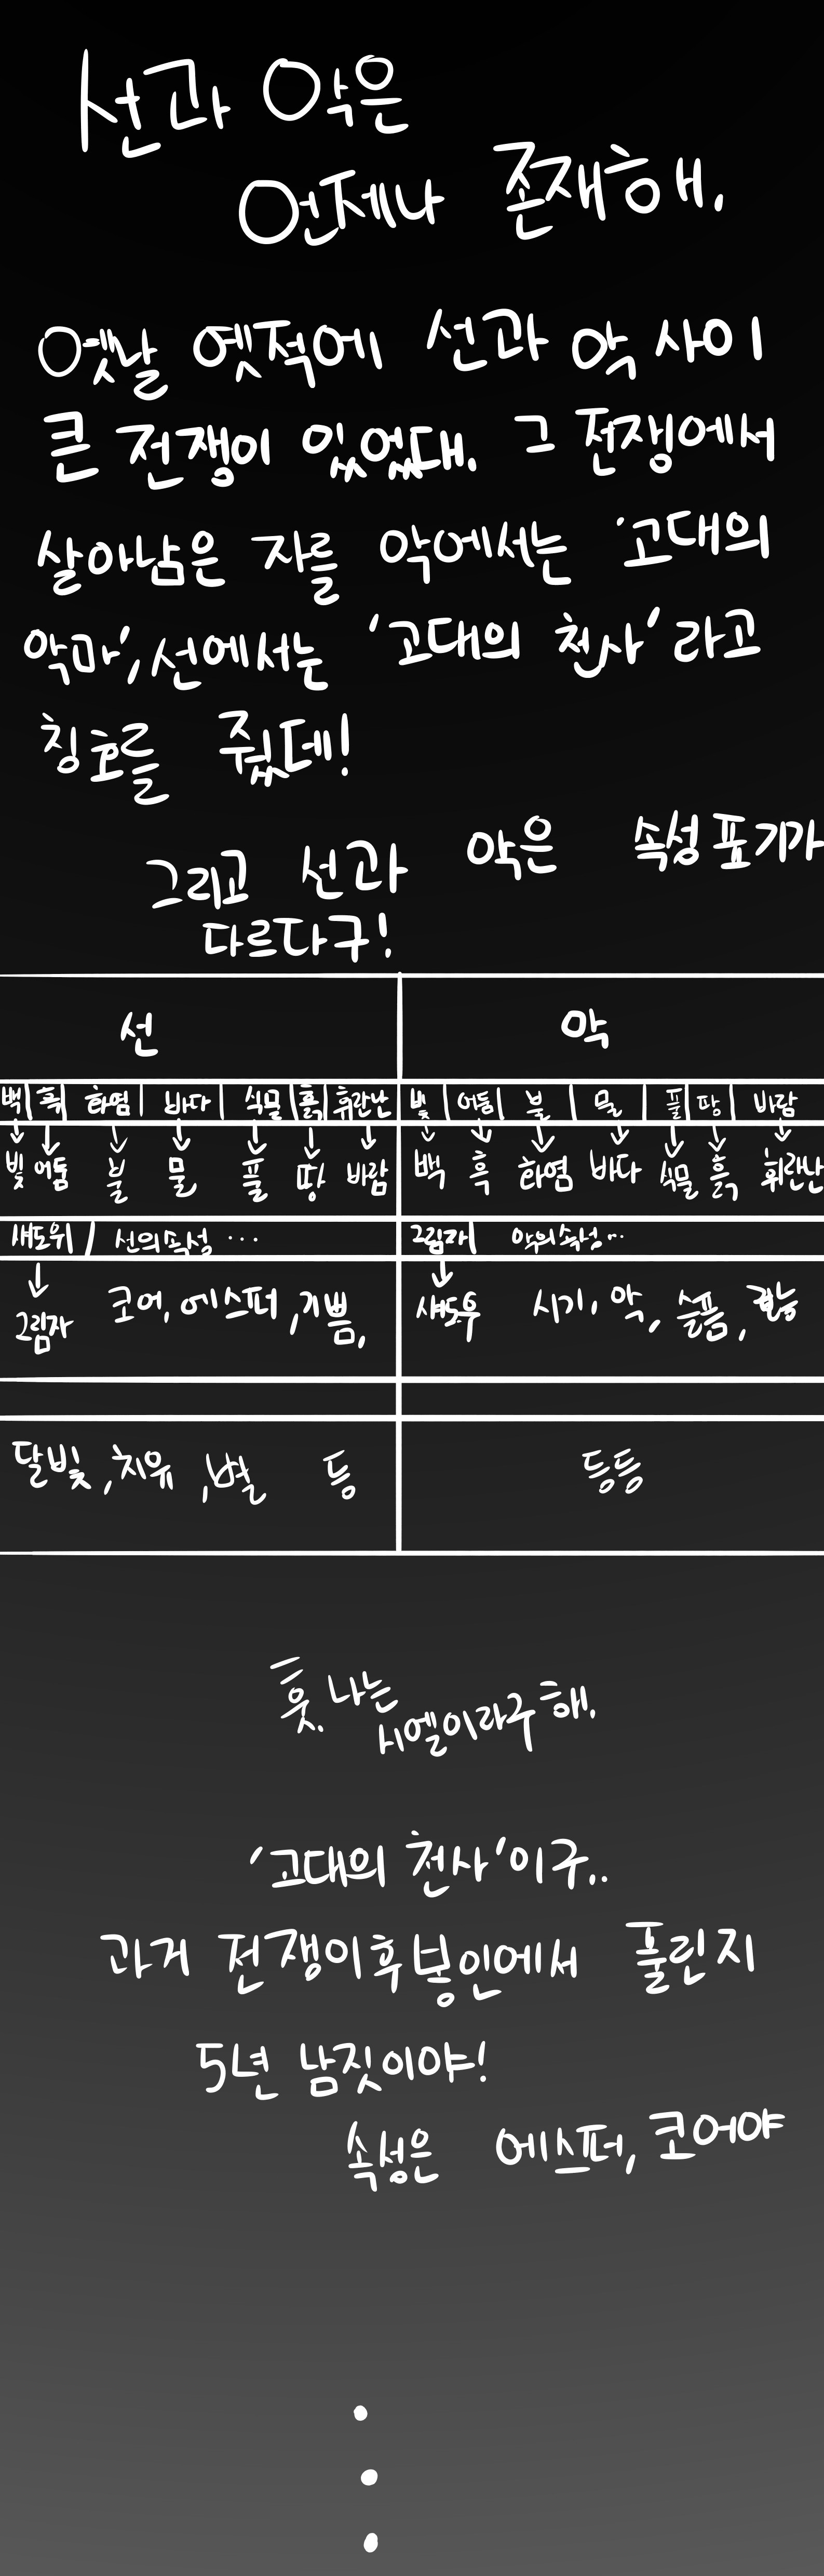 선과 악은
언제나 존재해.
옛날 옛적에 선과 악 사이
큰 전쟁이 있었대. 그 전쟁에서
살아남은 자를 악에서는 '고대의
악마', 선에서는 '고대의 천사'라고
칭호를 줬데!
그리고 선과 악은 속성 표기가
다르다구!
선 악
백 흑 화염 바다 식물 흙 휘란난 빛 어둠 불 물 풀 땅 바람
빛 어둠 불 물 풀 땅 바람 백 흑 화염 바다 식물 흙 휘란난
섀도우 선의 속성 ... 그림자 악의 속성...
그림자 코어, 에스퍼, 기쁨, 섀도우 시기, 악, 슬픔,
달빛, 치유, 별 등 등등
훗, 나는
시엘이라구 해.
'고대의 천사'이구..
과거 전쟁이후 봉인에서 풀린지
5년 남짓이야!
속성은 에스퍼, 코어야